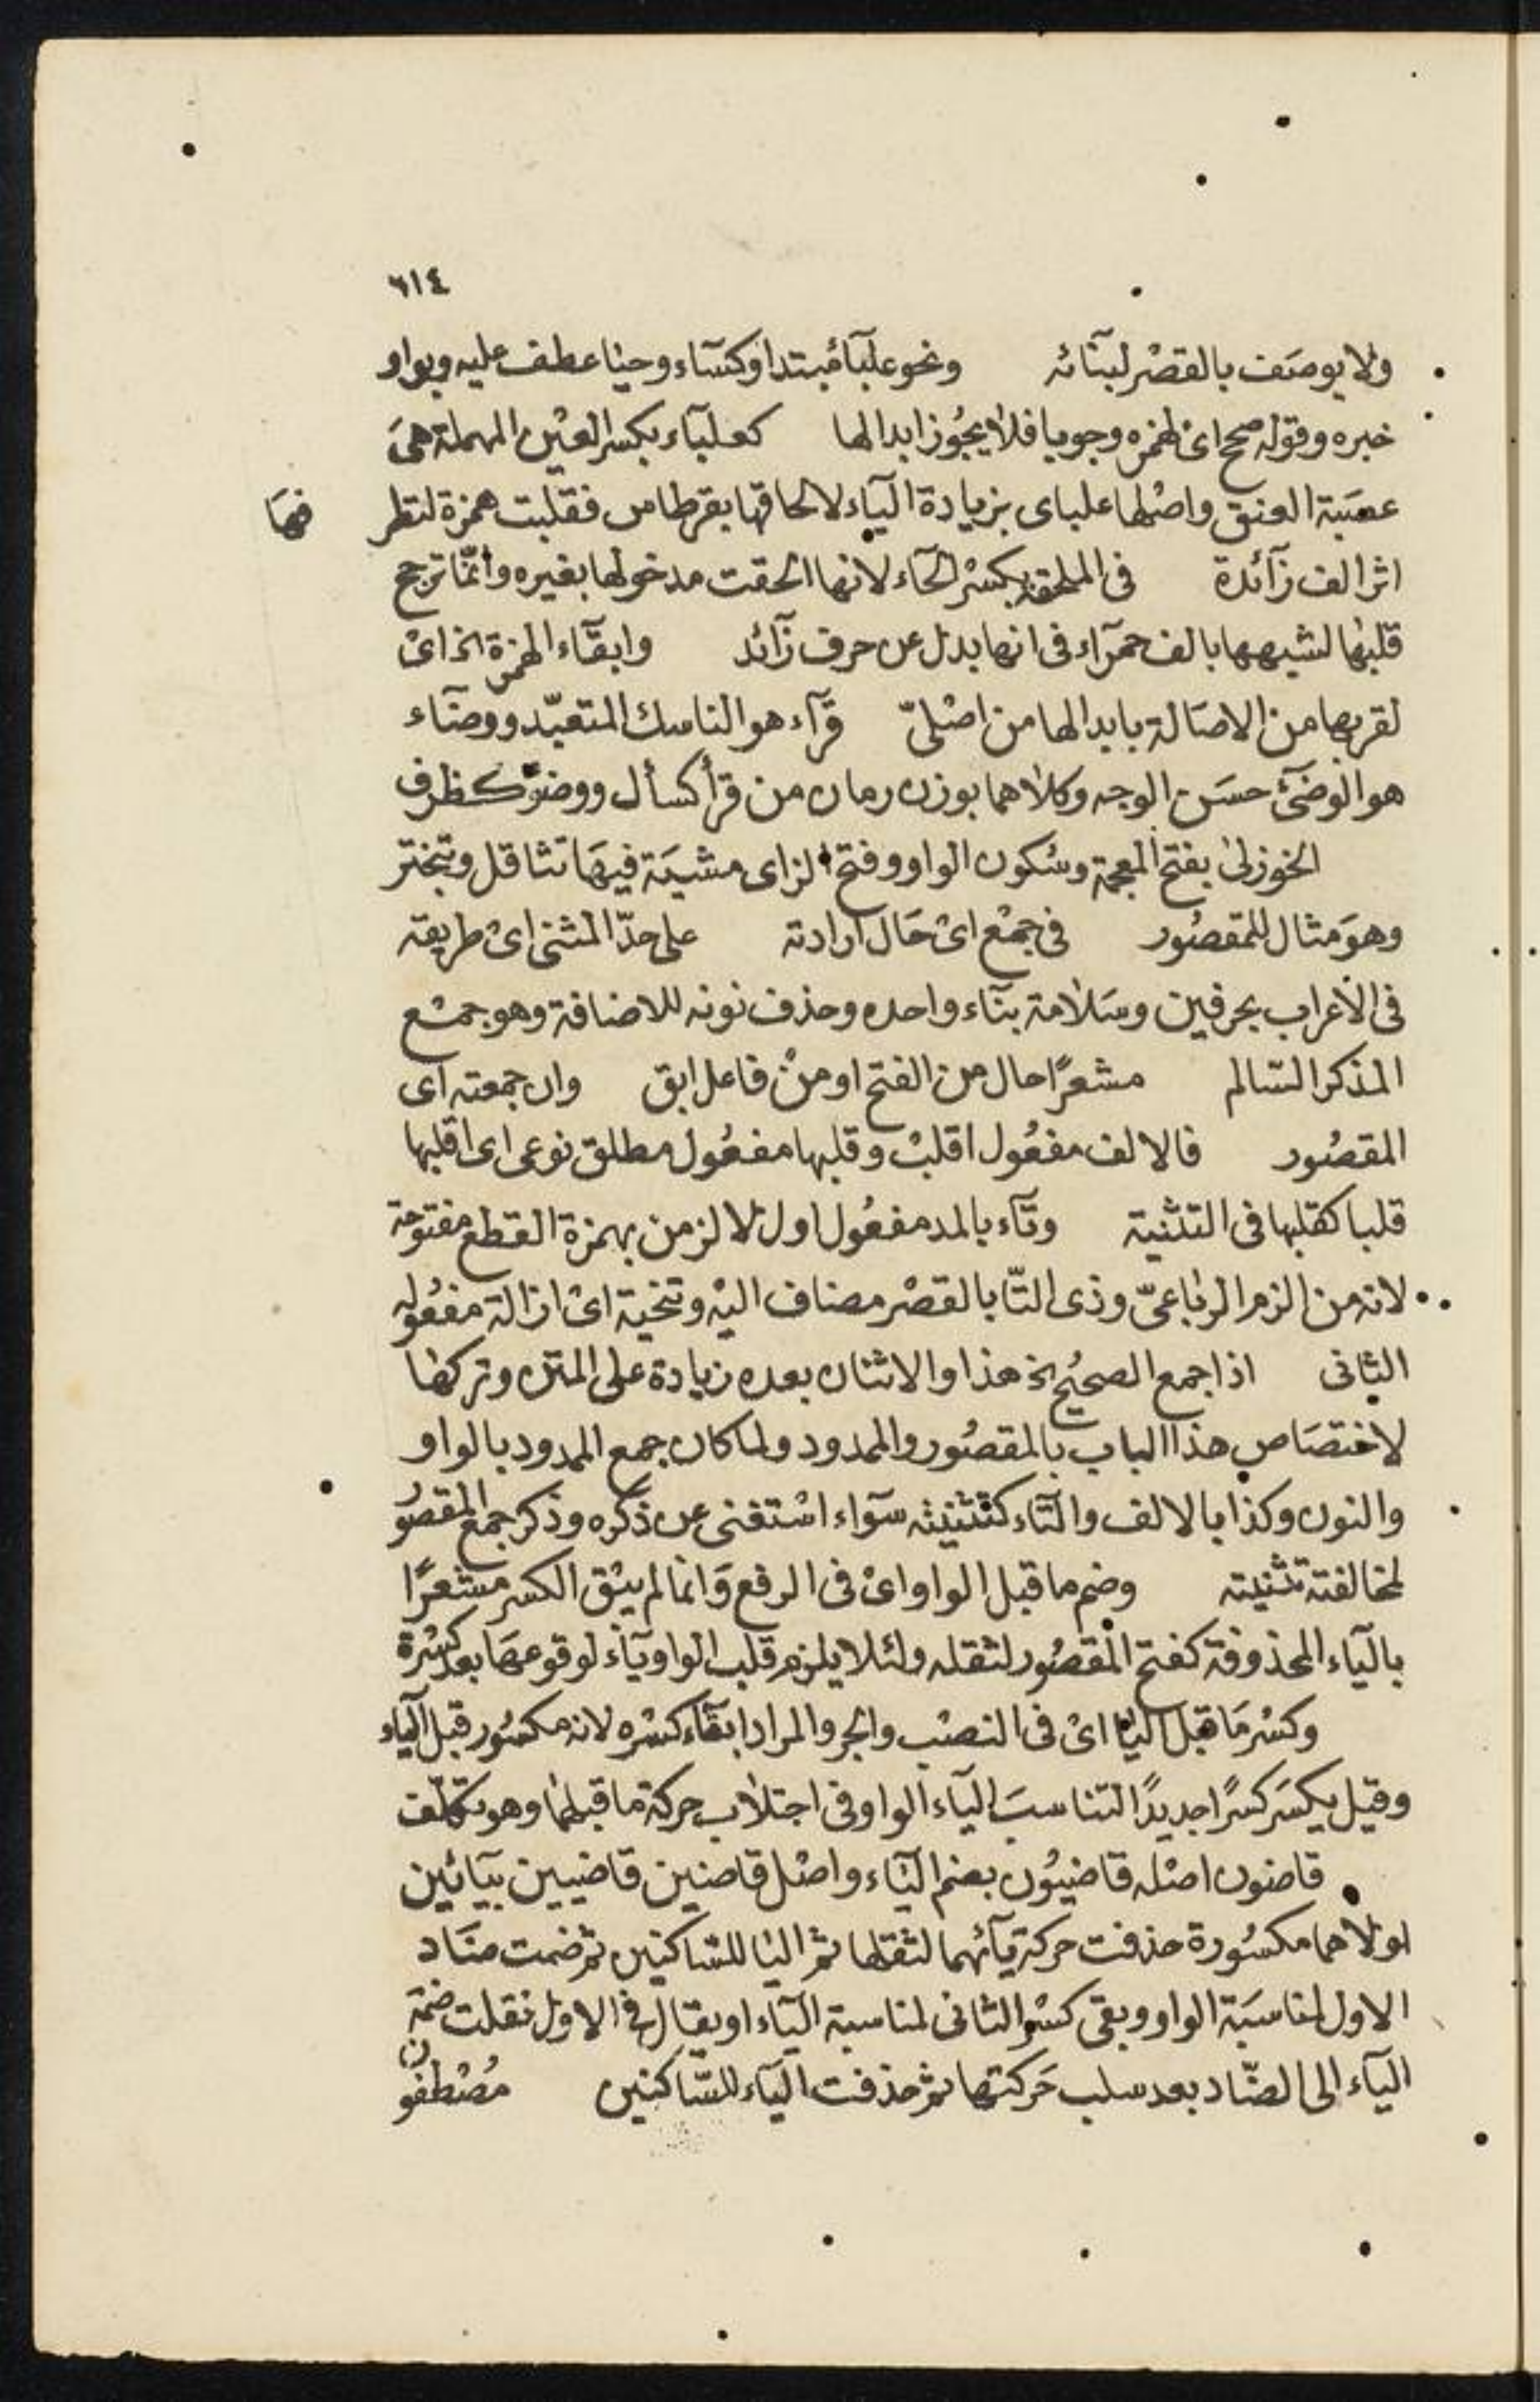 ٦١٤
ولا يوصف بالقصر لبنائه ونحو علبآء مبتدا وكسآء وحيا عطف عليه وبواو
خبره وقوله صحح اى لهمزه وجوبا فلا يجوز ابدالها كعلبآء بكسر العين المهملة هى
عصبة العنق واصلها علباى بزيادة اليآء لالحاقها بقرطاس فقلبت همزة لتطر فها
اثر الف زآئدة فى الملحقة بكسر الحآء لانها الحقت مدخولها بغيره وانما ترجح
قلبها لشبهها بالف حمرآء فى انها بدل عن حرف زآئد وابقآء الهمزة الخ اى
لقربها من الاصالة بابدالها من اصلىّ قرآء هو الناسك المتعبّد ووضآء
هو الوضئ حسن الوجه وكلاهما بوزن رمان من قرأ كسأل ووضؤ كظرف
الخوزلى بفتح المعجمة وسكون الواو وفتح الزاى مشية فيها تثاقل وتبختر
وهو مثال للمقصور فى جمع اى حال ارادته على حدّ المثنى اى طريقته
فى الاعراب بحرفين وسلامة بنآء واحده وحذف نونه للاضافة وهو جمع
المذكر السالم مشعرًا حال من الفتح او من فاعل ابق وان جمعته اى
المقصور فالالف مفعول اقلب وقلبها مفعول مطلق نوعى اى اقلبها
قلبا كقلبها فى التثنية وتآء بالمد مفعول اول لالزمن بهمزة القطع مفتوحة
لانه من الزم الرباعىّ وذى التّا بالقصر مضاف اليه وتنحية اى ازالة مفعوله
الثانى اذا جمع الصحيح الخ هذا والاثنان بعده زيادة على المتن وتركها
لاختصاص هذا الباب بالمقصور والممدود ولما كان جمع الممدود بالواو
والنون وكذا بالالف والتآء كتثنيته سوآء استغنى عن ذكره وذكر جمع المقصور
لمخالفته تثنيته وضم ما قبل الواو اى فى الرفع وانما لم يبق الكسر مشعرًا
باليآء المحذوفة كفتح المقصور لثقله ولئلا يلزم قلب الواو يآء لوقوعها بعد كسرة
وكسر ما قبل اليا اى فى النصب والجر والمراد ابقآء كسره لانه مكسور قبل اليآء
وقيل يكسر كسرًا جديدًا لتناسب اليآء الواو فى اجتلاب حركة ما قبلها وهو تكلّف
قاضون اصله قاضيون بضم اليآء واصل قاضين قاضيين بيائين
اولاهما مكسورة حذفت حركة يآئهما لثقلها ثم اليا للساكنين ثم ضمت ضاد
الاول لمناسبة الواو وبقى كسر الثانى لمناسبة اليآء او يقال فى الاول نقلت ضمة
اليآء الى الضّاد بعد سلب حركتها ثم حذفت اليآء للسّاكنين مصطفون